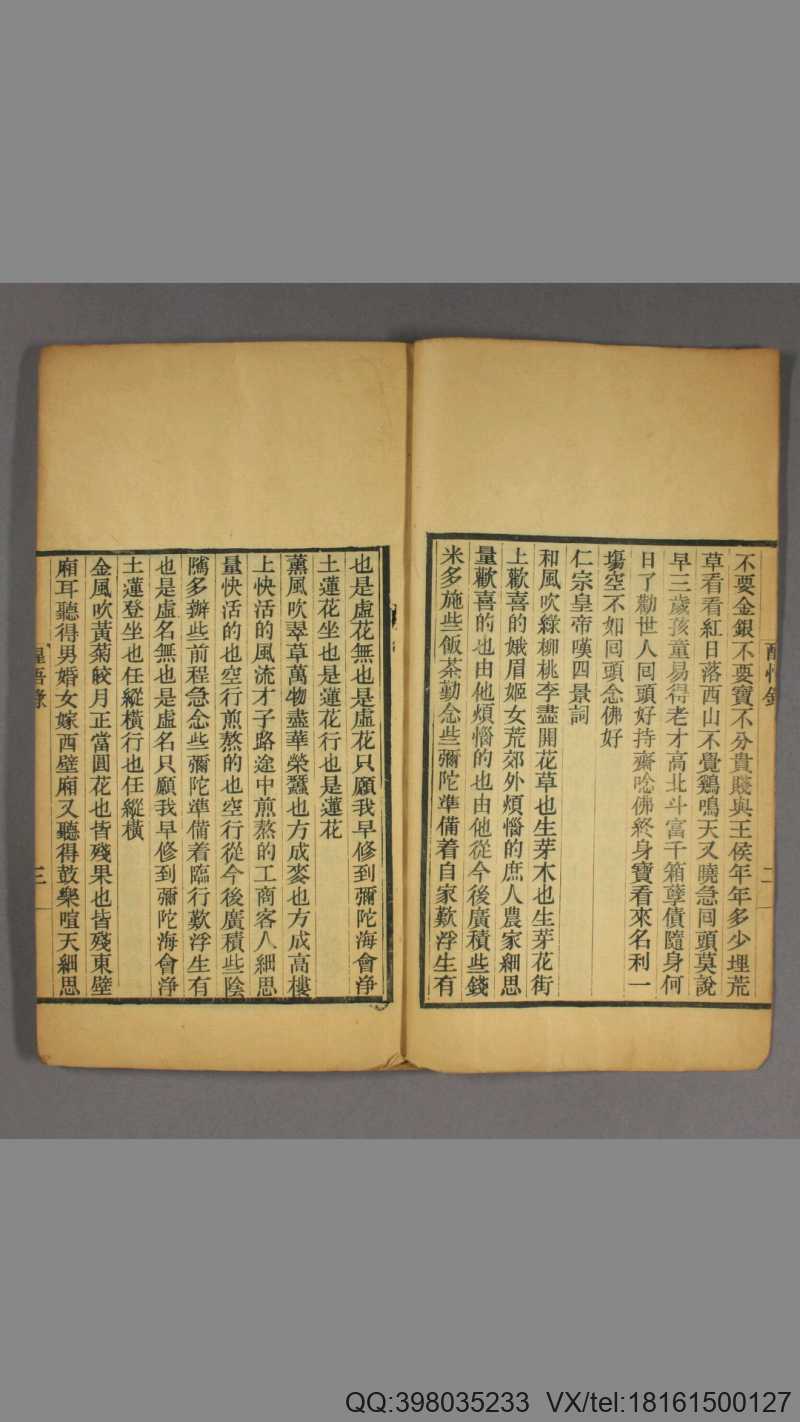 不要金銀不要寶不分貴賤與王侯年年多少埋荒
草看看紅日落西山不覺鷄鳴天又曉急囘頭莫說
早三歲孩童易得老才高北斗富千箱孽債隨身何
日了勸世人囘頭好持齋唸佛終身寶看來名利一
塲空不如囘頭念佛好
仁宗皇帝嘆四景詞
和風吹綠柳桃李盡開花草也生芽木也生芽花街
上歡喜的娥眉姬女荒郊外煩惱的庶人農家細思
量歡喜的也由他煩惱的也由他從今後廣積些錢
米多施些飯茶勤念些彌陀準備着自家歎浮生有
二
也是虛花無也是虛花只願我早修到彌陀海會淨
土蓮花坐也是蓮花行也是蓮花
薰風吹翠草萬物盡華榮蠶也方成麥也方成高樓
上快活的風流才子路途中煎熬的工商客人細思
量快活的也空行煎熬的也空行從今後廣積些陰
隲多辦些前程急念些彌陀準備着臨行歎浮生有
也是虛名無也是虛名只願我早修到彌陀海會淨
土蓮登坐也任縱橫行也任縱橫
金風吹黃菊皎月正當圓花也皆殘果也皆殘東壁
廂耳聽得男婚女嫁西壁廂又聽得鼓樂喧天細思
三
QQ:398035233 VX/tel:18161500127